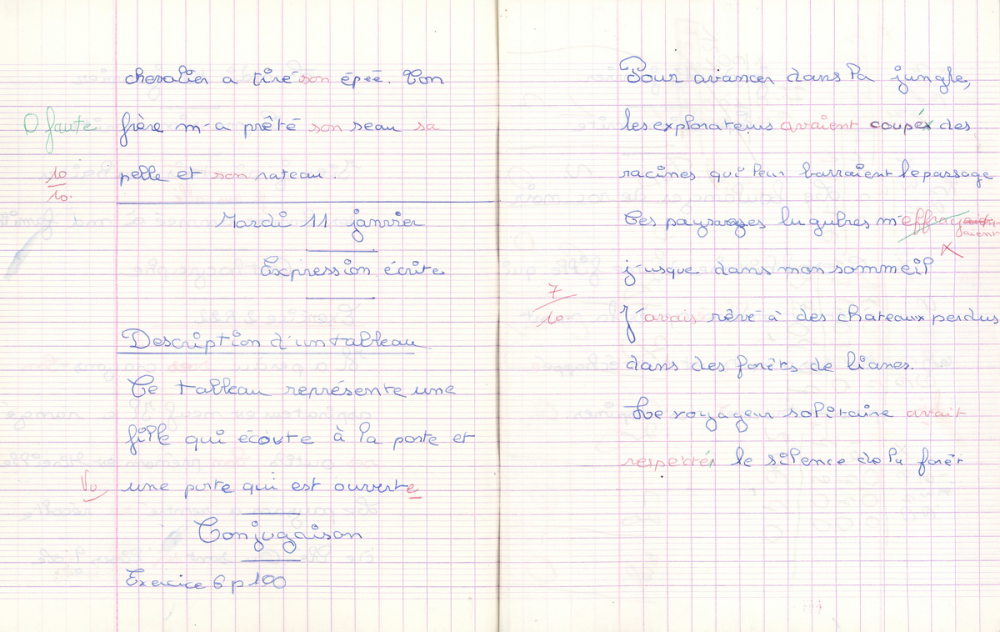 chevalier a tiré son épée. Ton
0 faute frère m'a prêté son seau sa
10/10. pelle et son rateau.
Mardi 11 janvier
Expression écrite
Description d'un tableau
Ce tableau représente une
fille qui écoute à la porte et
Vu une porte qui est ouverte
Conjugaison
Exercice 6 p 100
Pour avancer dans la jungle,
les explorateurs avaient coupé des
racines qui leur barraient le passage
Ces paysages lugubres m'
jusque dans mon sommeil
7/10 J'avais rêvé à des chateaux perdus
dans des forêts de lianes.
Le voyageur solitaire avait
respecté le silence de la forêt